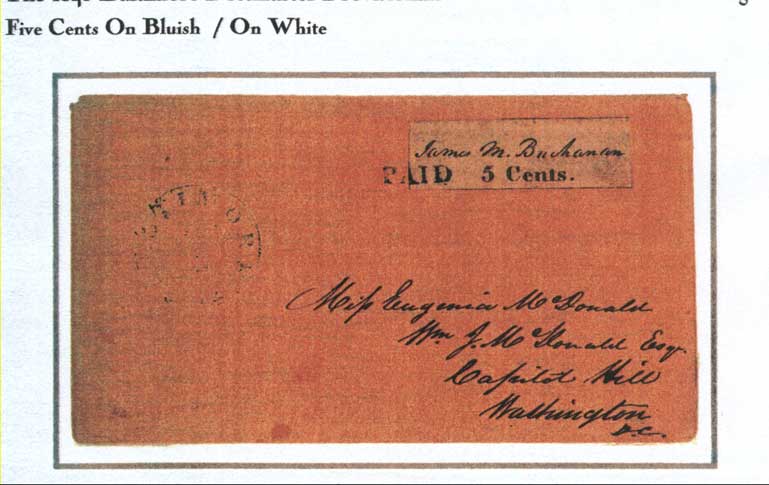 Five Cents On Bluish / On White
James M. Buchanan
PAID 5 Cents.
Miss Eugenia McDonald
Wm J. McDonald Esq
Capitol Hill
Washington
D.C.